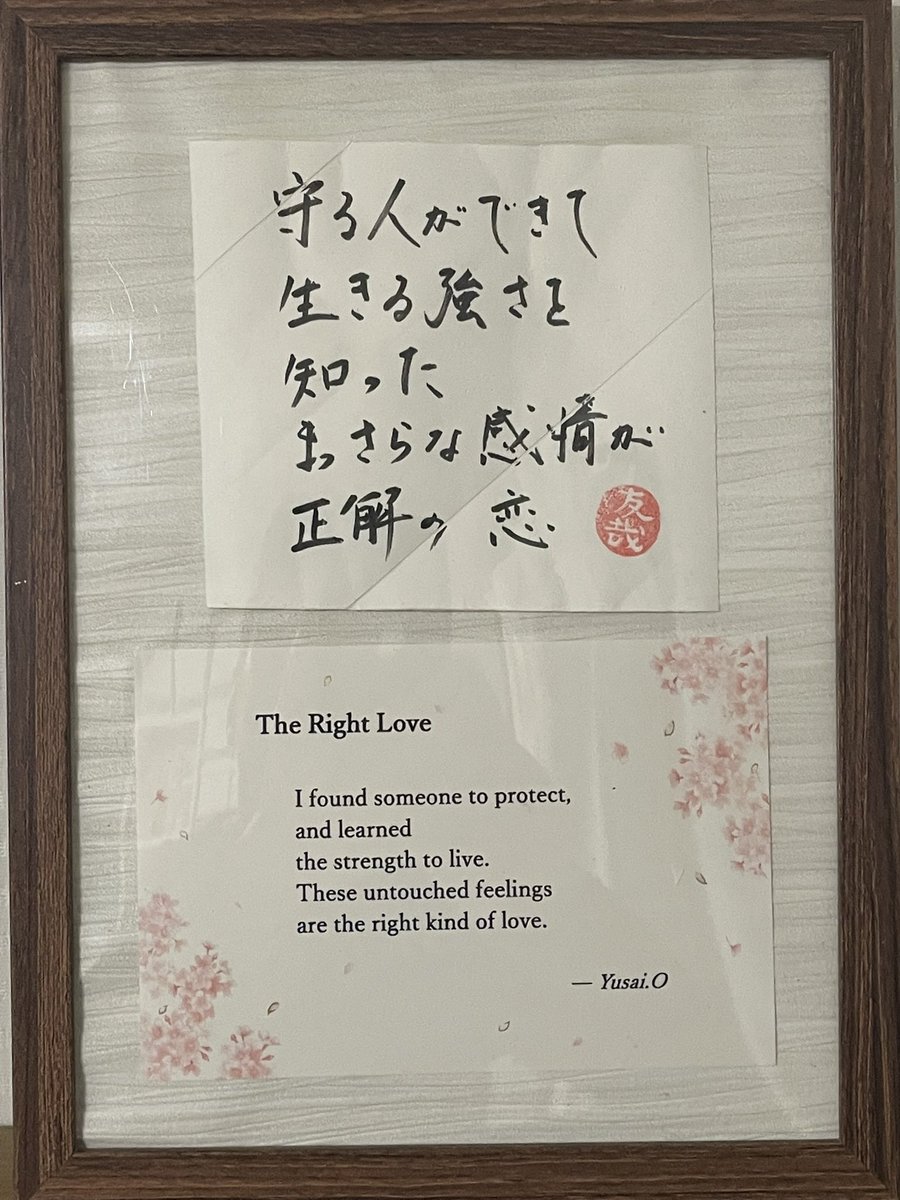 守る人ができて
生きる強さを
知った
まっさらな感情が
正解の恋
友哉
The Right Love
I found someone to protect,
and learned
the strength to live.
These untouched feelings
are the right kind of love.
— Yusai.O